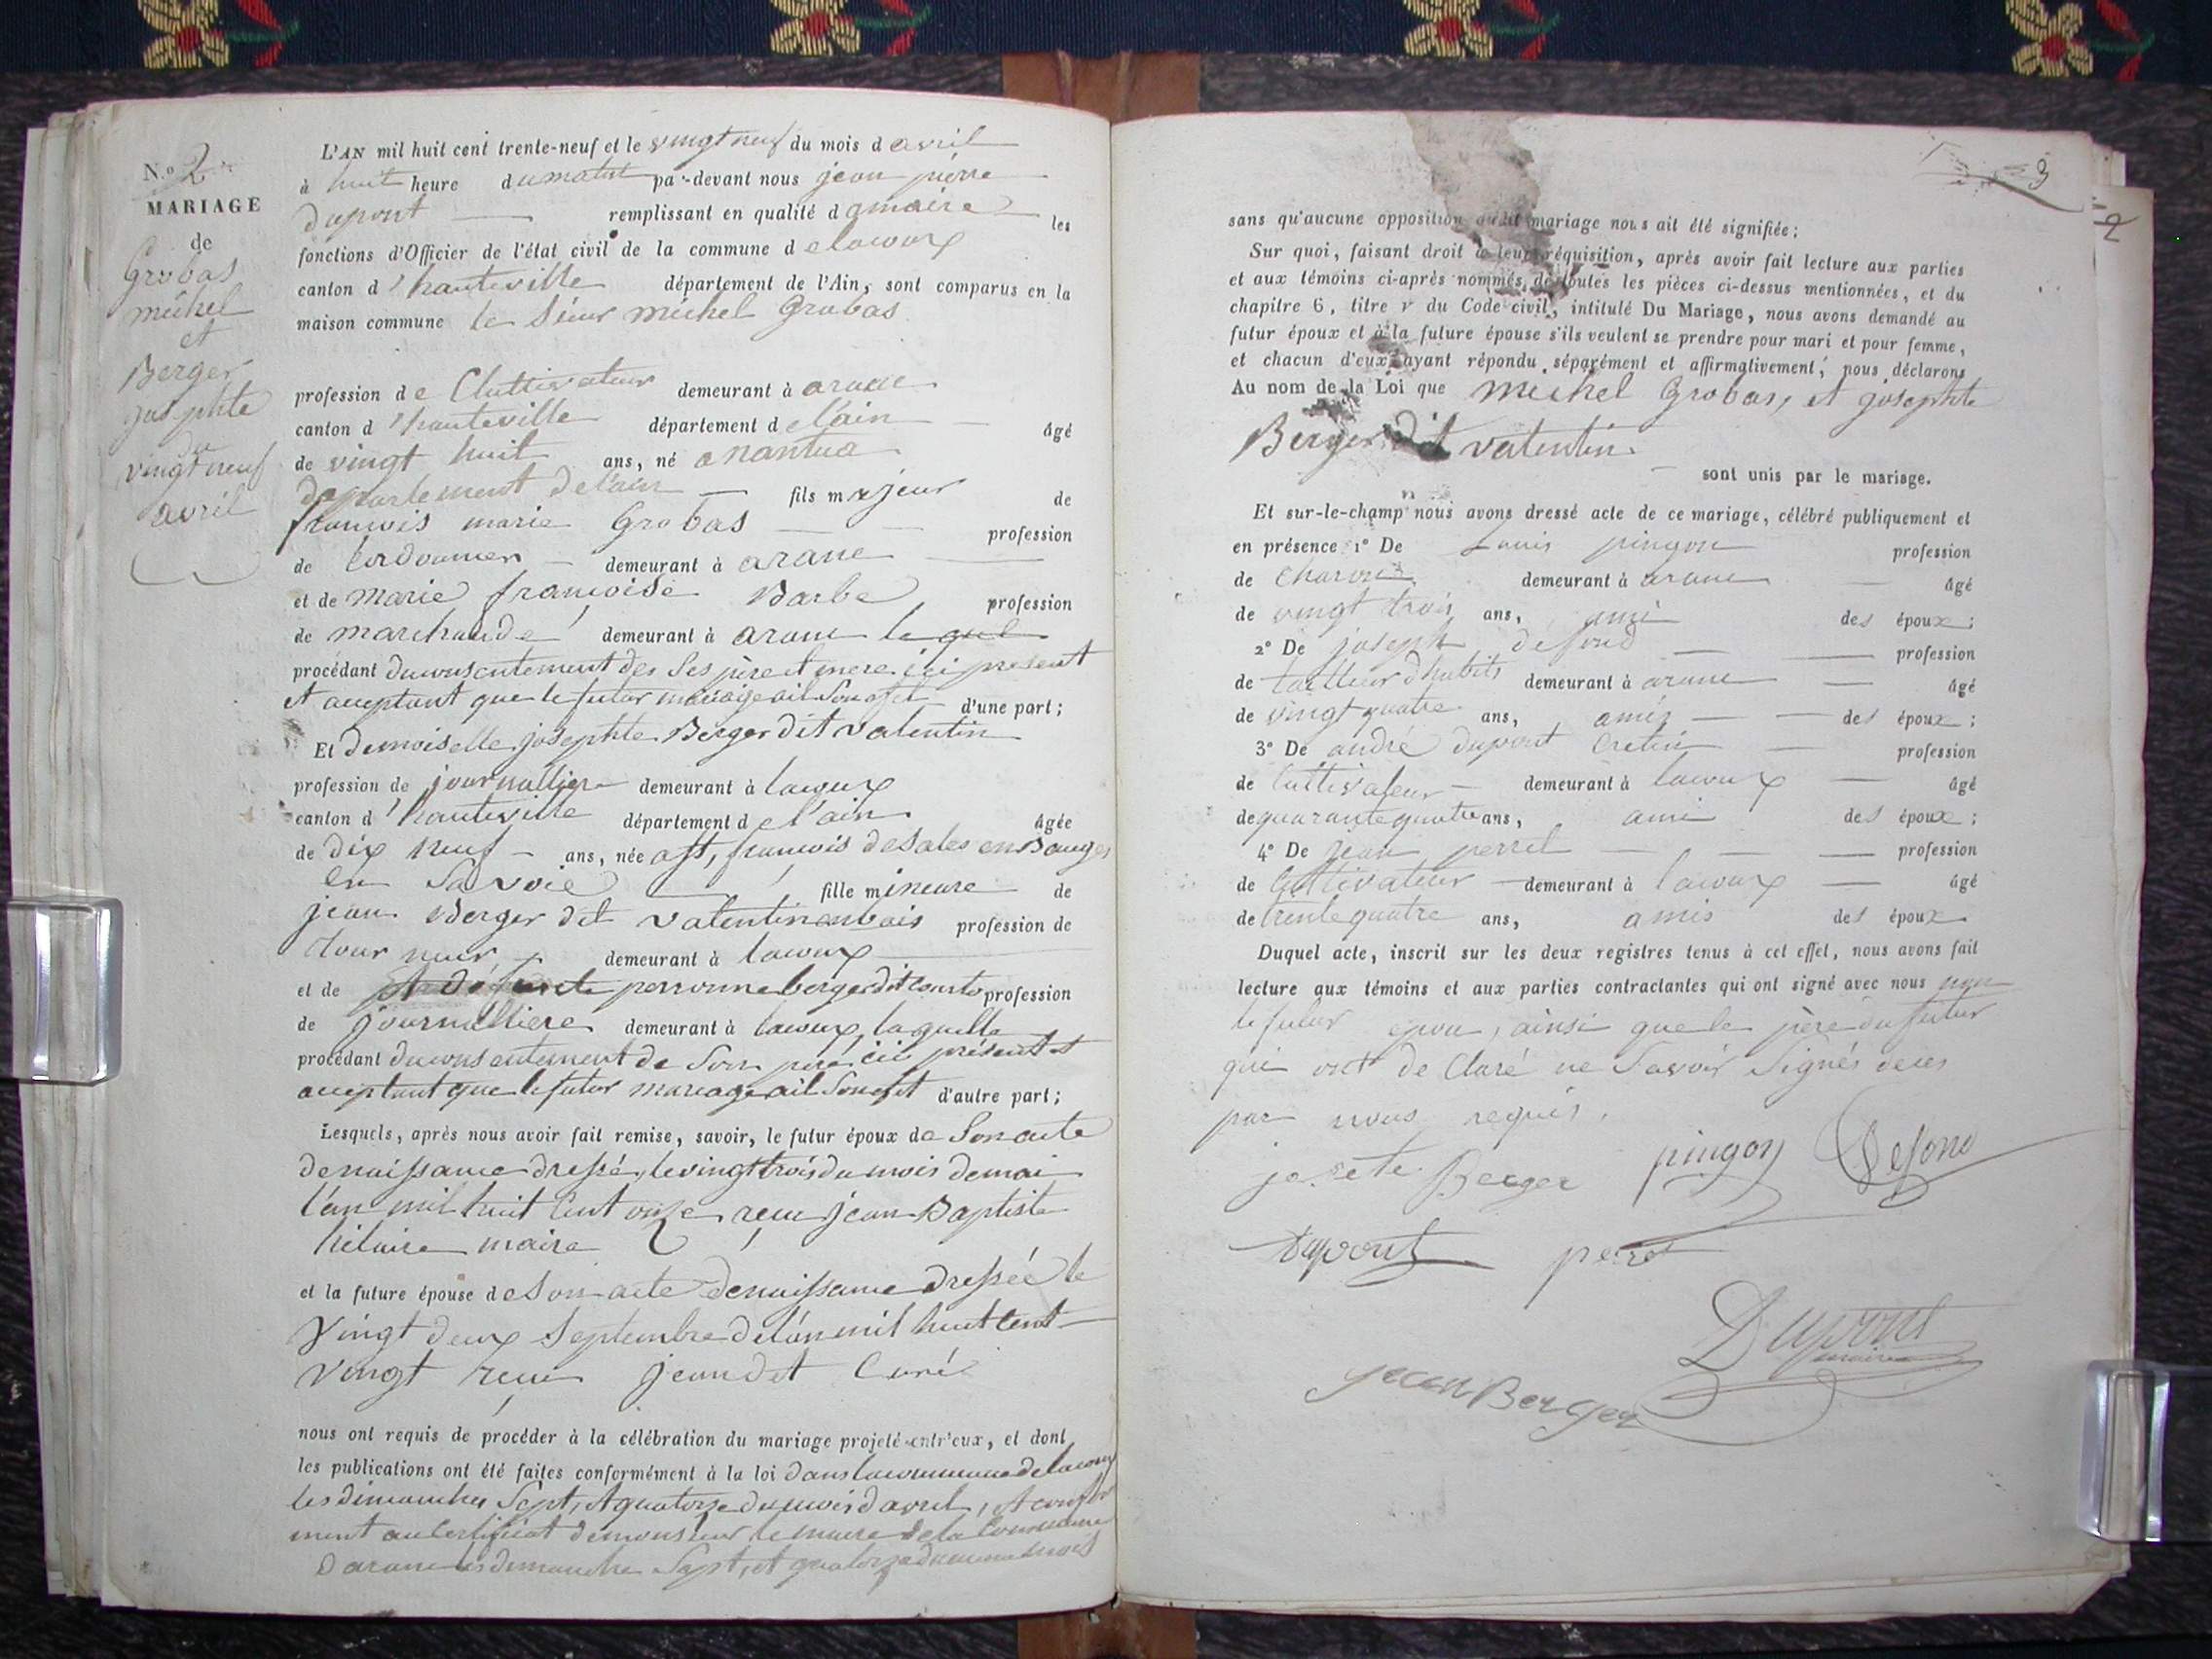 N.o 2
MARIAGE
de
Grobas
michel
et
Berger
josephte
du
vingt neuf
avril
L'AN mil huit cent trente-neuf et le vingt neuf du mois d avril
à huit heure du matin par-devant nous jean pierre
dupont remplissant en qualité d maire les
fonctions d'Officier de l'état civil de la commune d elacoux
canton d'hauteville département de l'Ain, sont comparus en la
maison commune le Sieur michel Grobas
profession de Cluttivateur demeurant à arane
canton d'hauteville département de l'ain âgé
de vingt huit ans, né a nantua
departement de l'ain fils majeur de
francois marie Grobas profession
de Cordonnier demeurant à arane
et de marie francoise Barbe profession
de marchande demeurant à arane le quel
procédant du consentement des Ses père et mere ici présent
et acceptant que le futur mariage ait Son effet d'une part;
Et demoiselle josephte Berger dit valentin
profession de journallier demeurant à lacoux
canton d'hauteville département de l'ain âgée
de dix neuf ans, née a st, francois de Sales en Bauges
en Savoie fille mineure de
jean Berger dit valentin profession de
tourneur demeurant à lacoux
et de perronne berger dit profession
de journalliere demeurant à lacoux, laquelle
procédant du consentement de Son père ici présent et
acceptant que le futur mariage ait Son effet d'autre part;
Lesquels, après nous avoir fait remise, savoir, le futur époux de Son acte
de naissance dressé, le vingt trois du mois de mai
l'an mil huit Cent onze recu jean Baptiste
hilaire maire
et la future épouse de Son acte de naissance dressée le
Vingt deux Septembre de l'an mil huit cent
vingt recu jeandet Curé
nous ont requis de procéder à la célébration du mariage projeté entr'eux, et dont
les publications ont été faites conformément à la loi dans la commune de lacoux
les dimanches Sept, et quatorze du mois d'avril, et
ment au Certificat de monsieur le maire de la Commune
D'arane les dimanche Sept, et quatorze du mois
3
2
sans qu'aucune opposition audit mariage nous ait été signifiée;
Sur quoi, faisant droit à leur réquisition, après avoir fait lecture aux parties
et aux témoins ci-après nommés, de toutes les pièces ci-dessus mentionnées, et du
chapitre 6, titre v du Code civil, intitulé Du Mariage, nous avons demandé au
futur époux et à la future épouse s'ils veulent se prendre pour mari et pour femme,
et chacun d'eux ayant répondu séparément et affirmativement, nous déclarons
Au nom de la Loi que michel Grobas, et josephte
Berger dit valentin
sont unis par le mariage.
Et sur-le-champ nous avons dressé acte de ce mariage, célébré publiquement et
en présence 1° De Louis pingon profession
de charron demeurant à arane âgé
de vingt trois ans, ami des époux;
2° De joseph defond profession
de tailleur d'habits demeurant à arane âgé
de vingt quatre ans, amis des époux;
3° De andré dupont Cretin profession
de Cultivateur demeurant à lacoux âgé
de quarante quatre ans, ami des époux;
4° De jean perret profession
de Cultivateur demeurant à lacoux âgé
de trente quatre ans, amis des époux
Duquel acte, inscrit sur les deux registres tenus à cet effet, nous avons fait
lecture aux témoins et aux parties contractantes qui ont signé avec nous non
le futur epou, ainsi que le père du futur
qui ont de Claré ne Savoir Signés de ces
par nous requis.
Berger pingon Defond
dupont perret
Dupont
maire
jean Berger